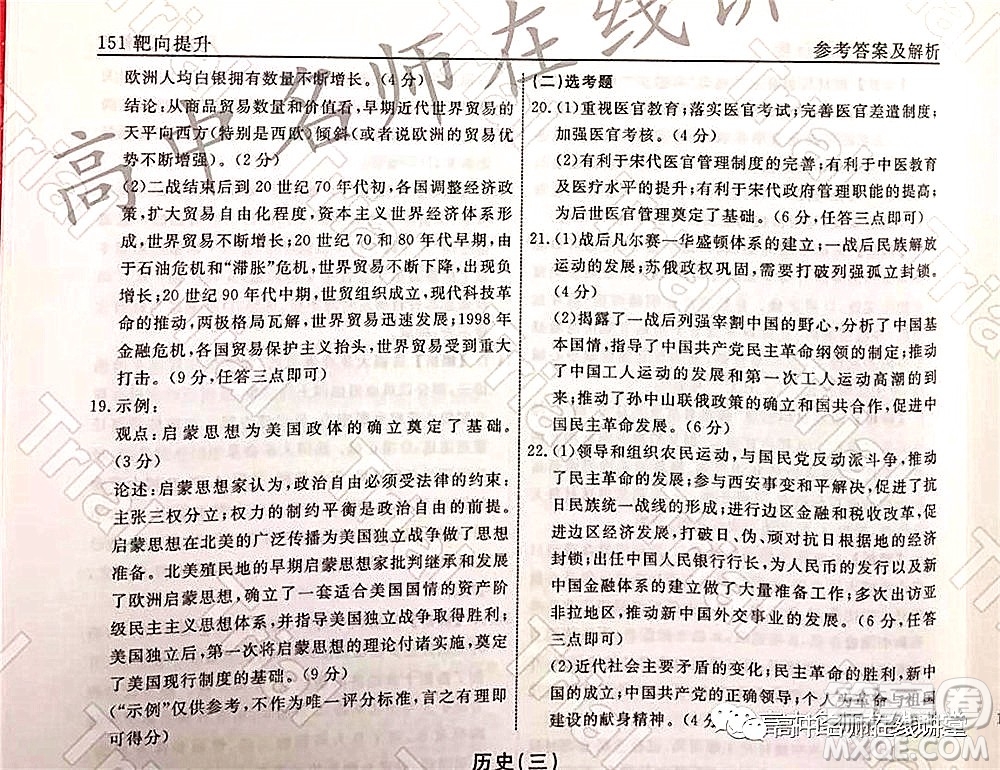 151 靶向提升
参考答案及解析
欧洲人均白银拥有数量不断增长。(4 分)
结论:从商品贸易数量和价值看,早期近代世界贸易的
天平向西方(特别是西欧)倾斜(或者说欧洲的贸易优
势不断增强)。(2 分)
(2)二战结束后到 20 世纪 70 年代初,各国调整经济政
策,扩大贸易自由化程度,资本主义世界经济体系形
成,世界贸易不断增长;20 世纪 70—80 年代早期,由
于石油危机和“滞胀”危机,世界贸易不断下降,出现负
增长;20 世纪 90 年代中期,世贸组织成立,现代科技革
命的推动,两极格局瓦解,世界贸易迅速发展;1998 年
金融危机,各国贸易保护主义抬头,世界贸易受到重大
打击。(9 分,任答三点即可)
19. 示例:
观点:启蒙思想为美国政体的确立奠定了基础。
(3 分)
论述:启蒙思想家认为,政治自由必须受法律的约束;
主张三权分立;权力的制约平衡是政治自由的前提。
启蒙思想在北美的广泛传播为美国独立战争做了思想
准备。北美殖民地的早期启蒙思想家批判继承和发展
了欧洲启蒙思想,建立了一套适合美国国情的资产阶
级民主主义思想体系,并指导美国独立战争取得胜利。
美国独立后,第一次将启蒙思想的理论付诸实施,奠定
了美国现行制度的基础。(9 分)
(“示例”仅供参考,不作为唯一评分标准,言之有理即
可得分)
(二)选考题
20. (1)重视医官教育;落实医官考试;完善医官差遣制度;
加强医官考核。(4 分)
(2)有利于宋代医官管理制度的完善;有利于中医教育
及医疗水平的提升;有利于宋代政府管理职能的提高;
为后世医官管理奠定了基础。(6 分,任答三点即可)
21. (1)战后凡尔赛—华盛顿体系的建立;一战后民族解放
运动的发展;苏俄政权巩固,需要打破列强孤立封锁。
(4 分)
(2)揭露了一战后列强宰割中国的野心,分析了中国基
本国情,指导了中国共产党民主革命纲领的制定;推动
了中国工人运动的发展和第一次工人运动高潮的到
来;推动了孙中山联俄政策的确立和国共合作,促进中
国民主革命发展。(6 分)
22. (1)领导和组织农民运动,与国民党反动派斗争,推动
了民主革命的发展;参与西安事变和平解决,促进了抗
日民族统一战线的形成;进行边区金融和税收改革,促
进边区经济发展,打破日、伪、顽对抗日根据地的经济
封锁;出任中国人民银行行长,为人民币的发行与以及新
中国金融体系的建立做了大量准备工作;多次出访亚
非拉地区,推动新中国外交事业的发展。(6 分,任答
三点即可)
(2)近代社会主要矛盾的变化;民主革命的胜利,新中
国的成立;中国共产党的正确领导;个人为革命与祖国
建设的献身精神。(4 分)
历史(三)
高中名师在线讲堂
高中名师在线讲堂
Trial
MXQE.COM